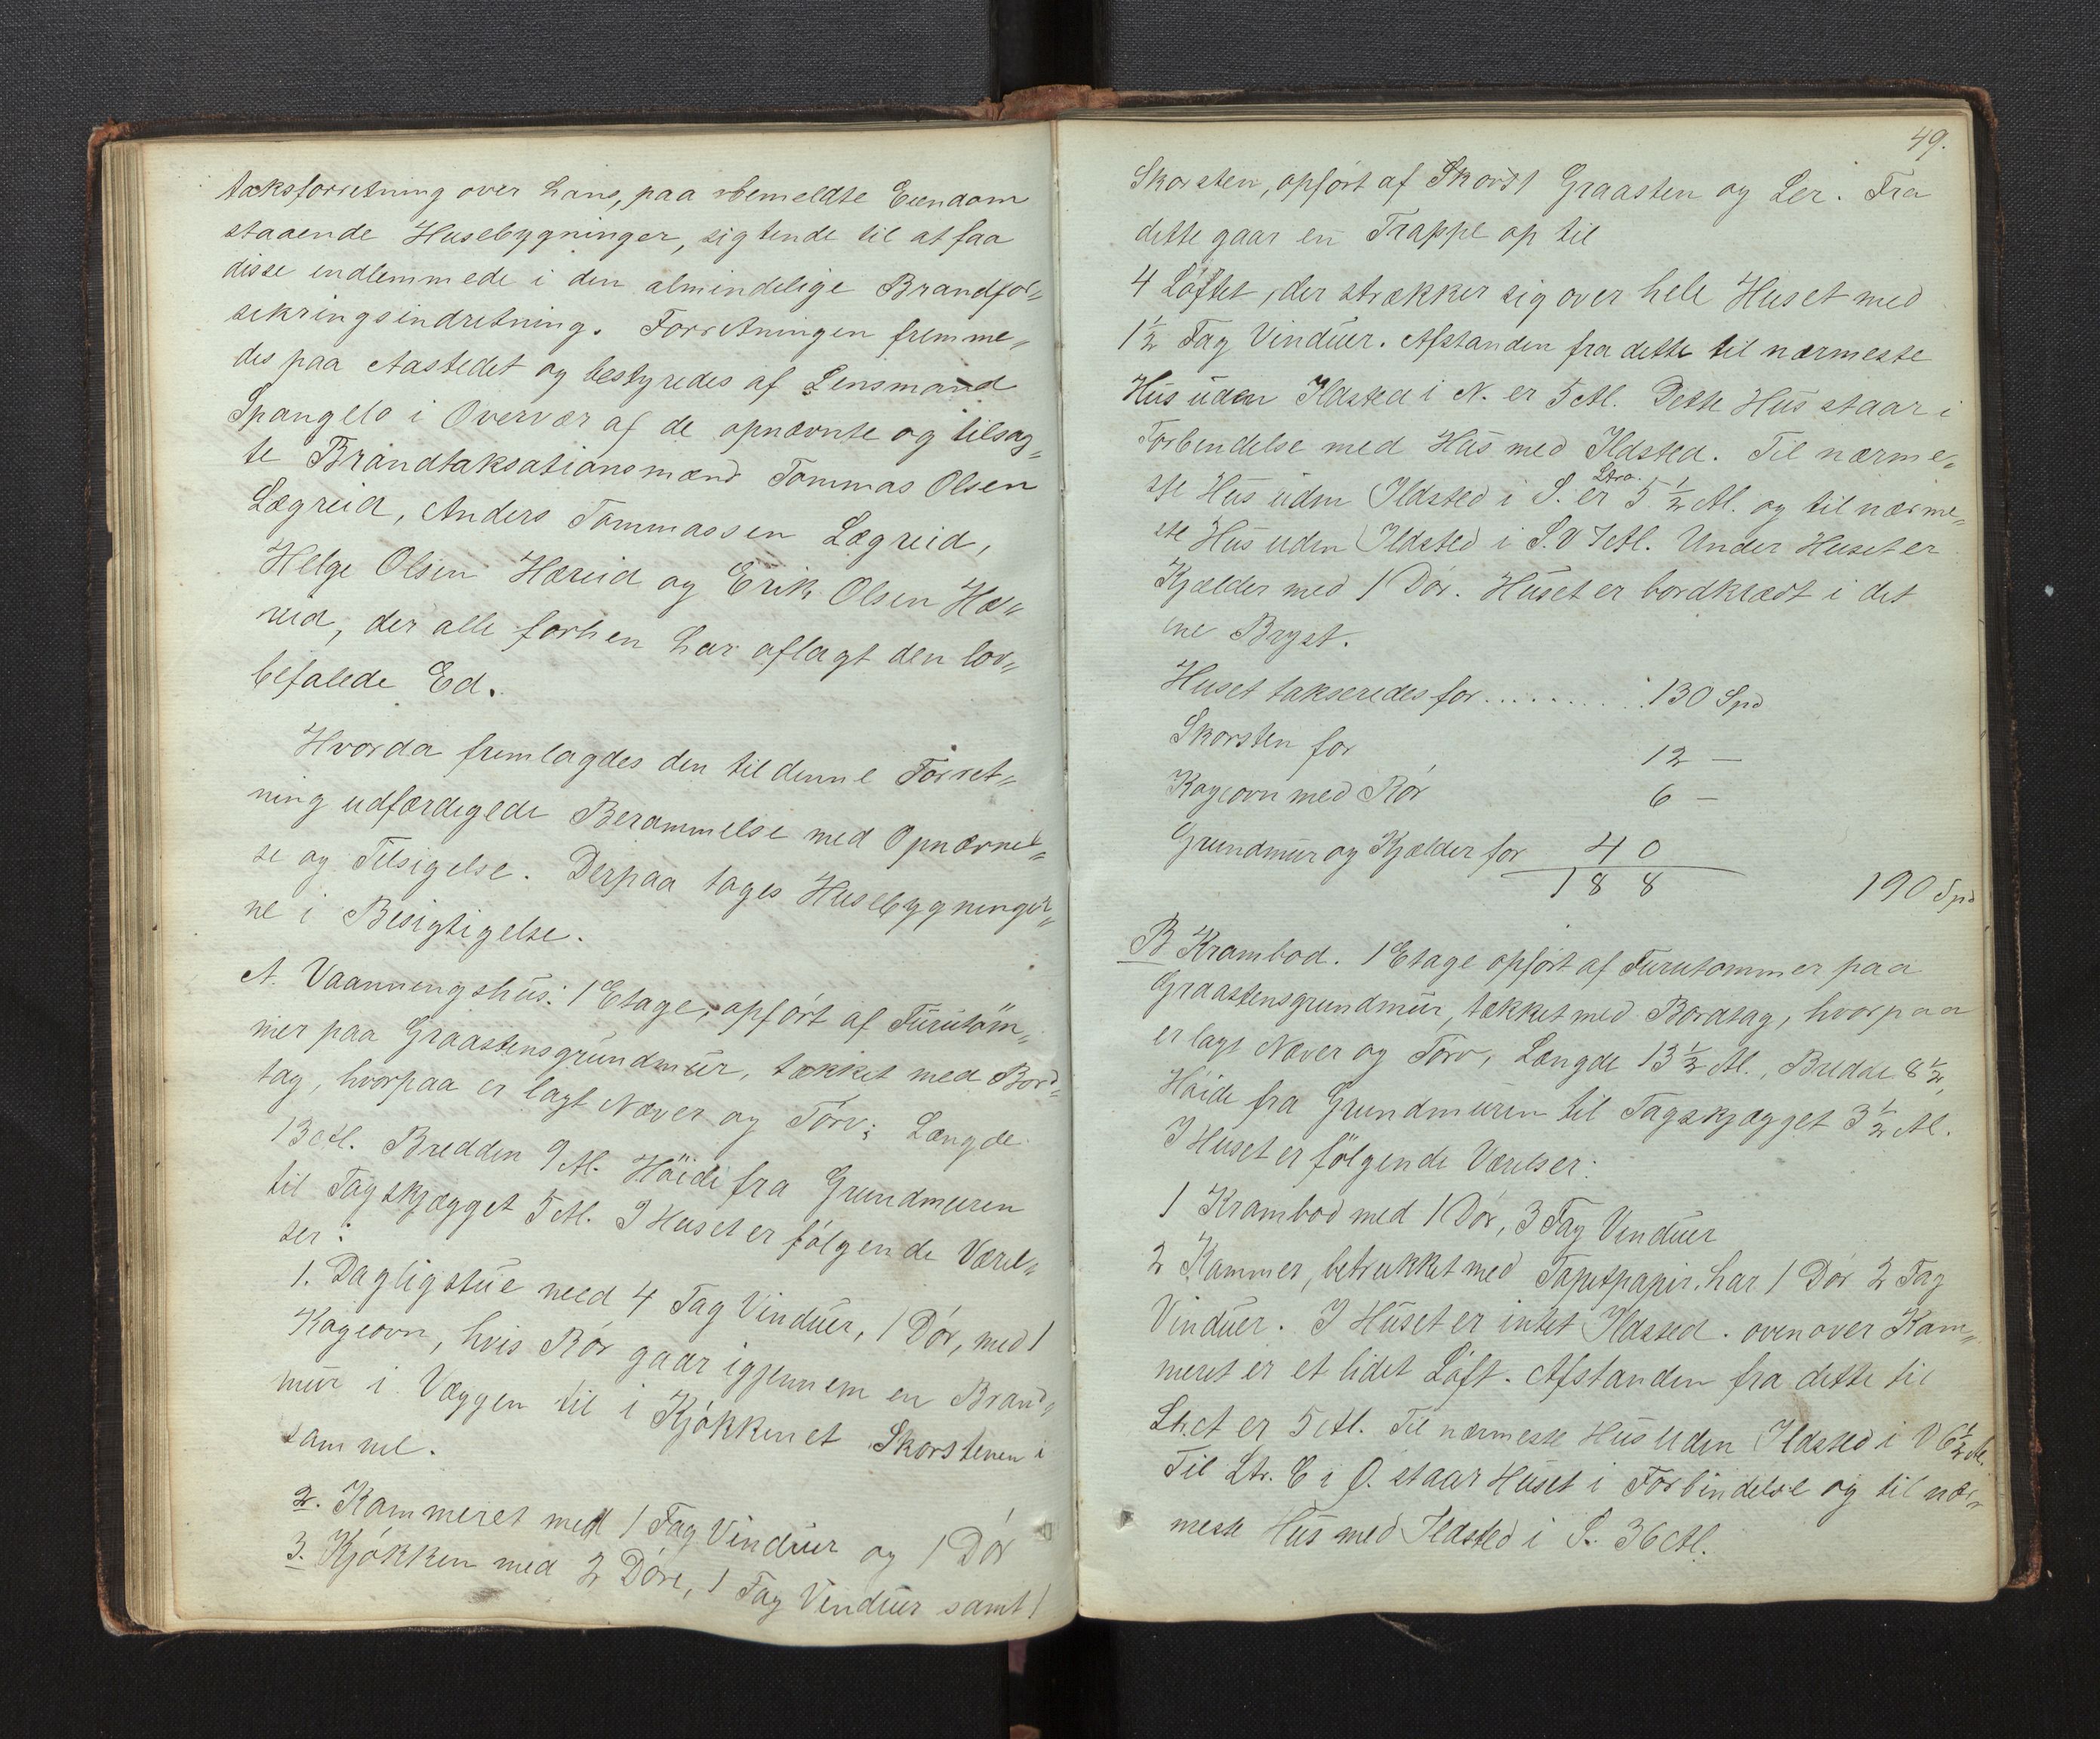 taksforretning over hans, paa bemeldte Eiendom
staaende Husebygninger, sigtende til at faa
disse indlemmede i den almindelige Brandfor„
sikringsindretning. Forretningen fremme„
des paa Aastedet og bestyredes af Lensmand
Spangelo i Overvær af de opnævnte og tilsag„
te Brandtaksationsmænd Tommas Olsen
Lægreid, Anders Tommassen Lægreid,
Helge Olsen Hæreid og Erik Olsen Hæ„
reid, der alle forhen har aflagt den lov„
befalede Ed.
Hvorda fremlagdes den til denne Forret„
ning udfærdigede Berammelse med Opnævnel„
se og Tilsigelse. Derpaa toges Husebygninger„
ne i Besigtigelse.
A. Vaanningshus: 1 Etage, opført af Furutöm„
mer paa Graastensgrundmur, tækket med Bord„
tag, hvorpaa er lagt Næver og Törv; Længde
13 Al. Bredden 9 Al. Höide fra Grundmuren
til Tagskjægget 5 Al. I Huset er følgende Værel„
ser:
1. Dagligstue med 4 Fag Vinduer, 1 Dør, med 1
Kogeovn, hvis Rør gaar igjennem en Brand„
mur i Væggen til i Kjøkkenet Skorstenen i
samme.
2. Kammeret med 1 Fag Vinduer og 1 Dør
3. Kjøkken med 2 Døre, 1 Fag Vinduer samt 1
49.
Skorsten, opført af Graasten og Ler. Fra
dette gaar en Trappe op til
4 Løftet, der strækker sig over hele Huset med
1½ Fag Vinduer. Afstanden fra dette til nærmeste
Hus uden Ildsted i N. er 5 Al. Dette Hus staar i
Forbindelse med Hus med Ildsted. Til nærme„
ste Hus uden Ildsted i S. er 5½ Al. og til nærme„
ste Hus uden Ildsted i S.V 7 Al. Under Huset er
Kjælder med 1 Dør. Huset er bordklædt i det
ene Bryst.
Huset takseredes for .......... 130 Spd
Skorsten for 12 —
Kogeovn med Rør 6 —
Grundmur og Kjælder for 40
188 190 Spd
B Krambod. 1 Etage opført af Furutømmer paa
Graastensgrundmur, tækket med Bordtag, hvorpaa
er lagt Næver og Törv, Længde 13½ Al., Bredde 8½,
Höide fra Grundmuren til Tagskjægget 3½ Al.
I Huset er følgende Værelser:
1 Krambod med 1 Dør, 3 Fag Vinduer
2 Kammer, betrukket med Tapetpapir. har 1 Dør 2 Fag
Vinduer. I Huset er intet Ildsted. ovenover Kam„
meret er et lidet Løft. Afstanden fra dette til
Ltr. A er 5 Al. Til nærmeste Hus uden Ildsted i V 6½ Al.
Til Ltr. C i Ø. staar Huset i Forbindelse og til nær„
meste Hus med Ildsted i S. 36 Al.